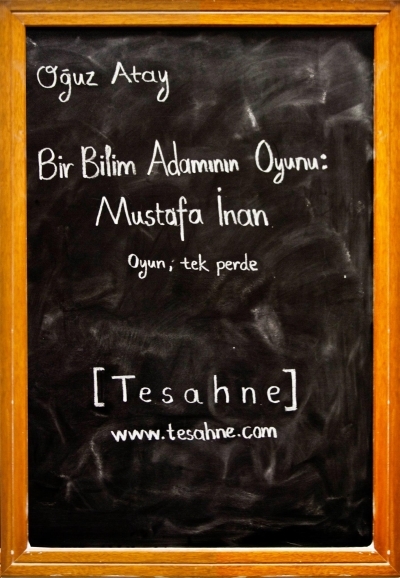 Oğuz Atay
Bir Bilim Adamının Oyunu:
Mustafa İnan
Oyun, tek perde
[Tesahne]
www.tesahne.com